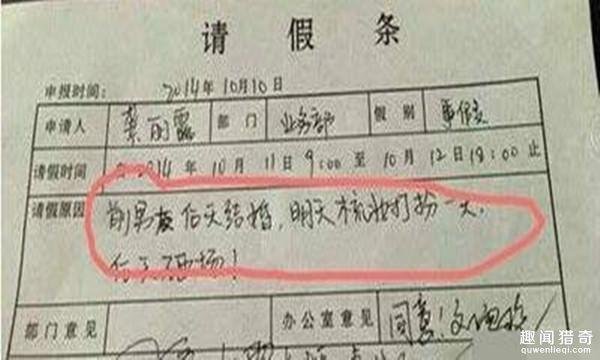 请假条
申报时间: 2014年10月10日
申请人 龚丽露 部门 业务部 假别 事假
请假时间 自2014年10月11日9:00至10月12日18:00止
请假原因 前男友后天结婚,明天梳妆打扮一天,
后天砸场!
部门意见 办公室意见 同意!
趣闻猎奇
quwenlieqi.com